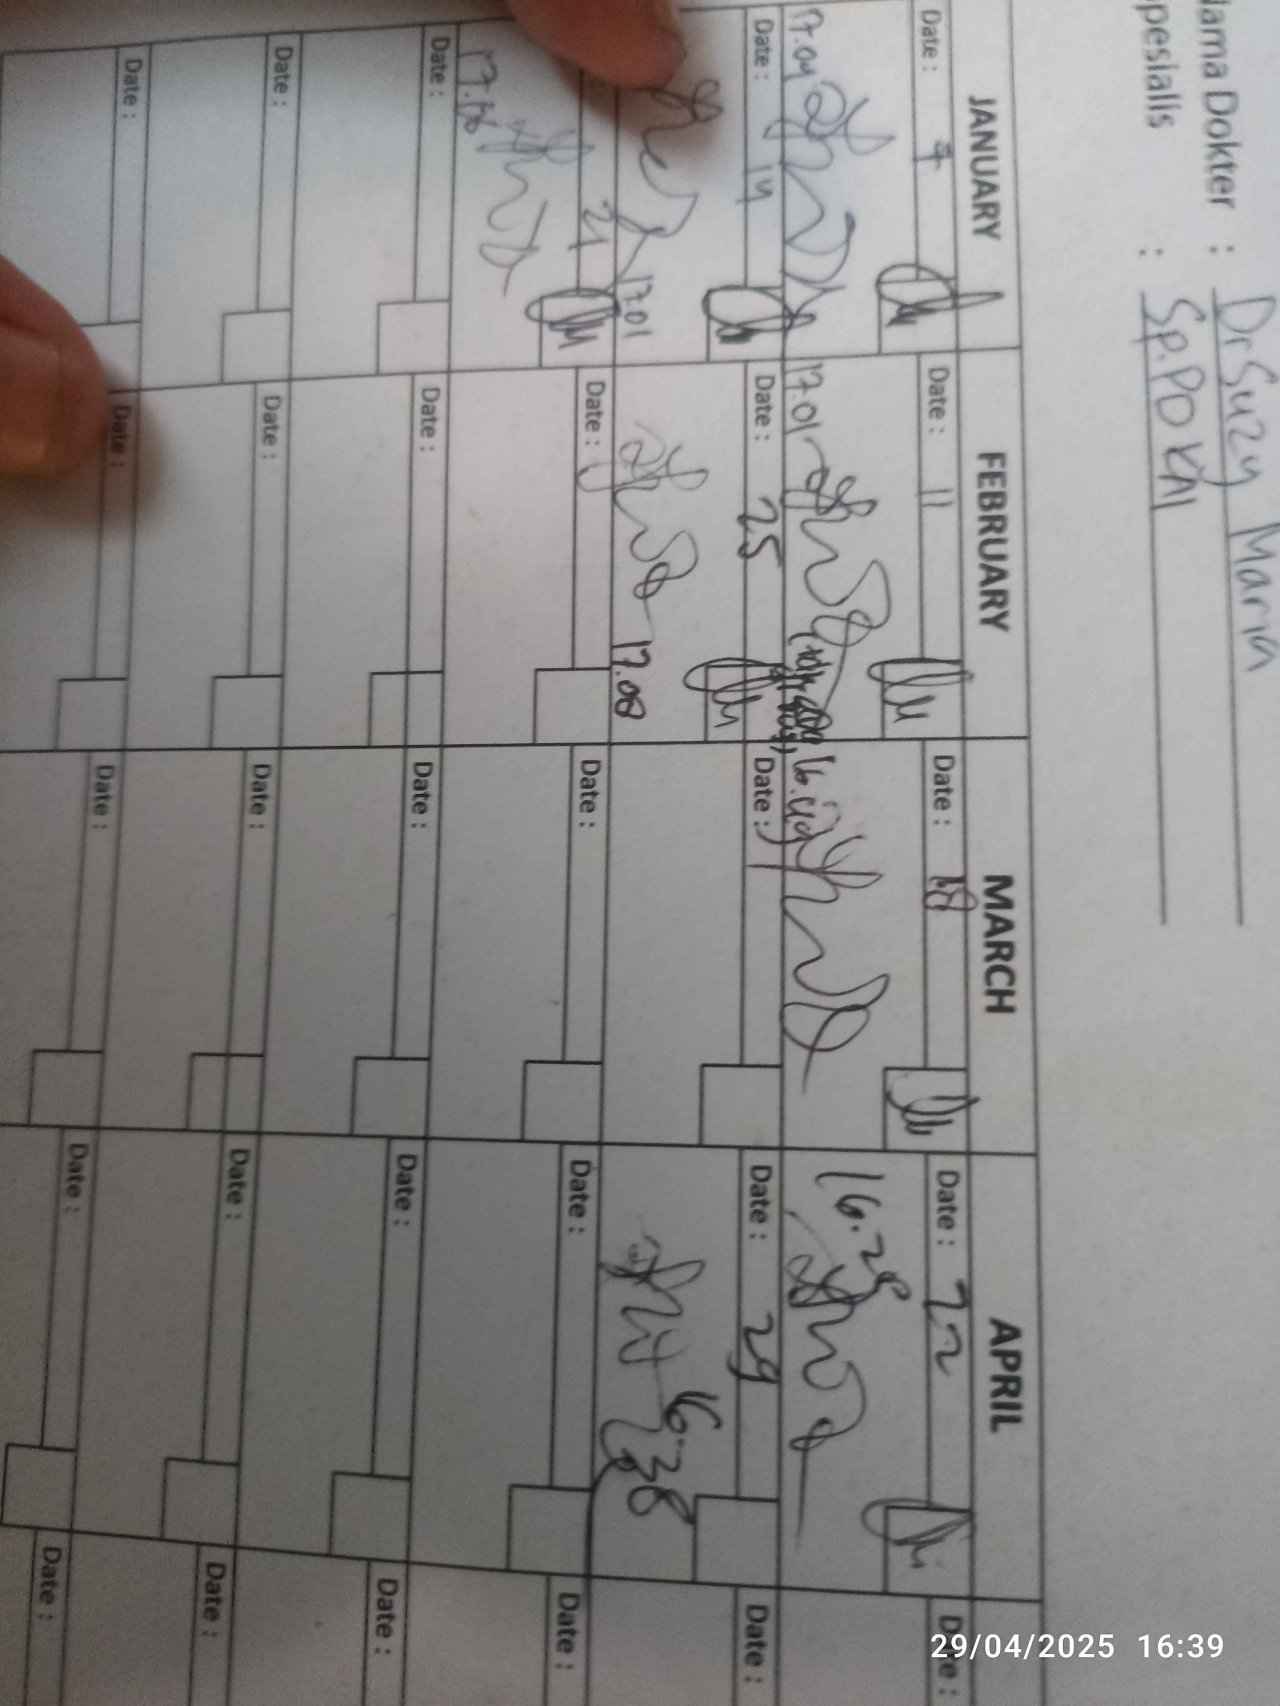 Nama Dokter : Dr Suzy Maria
Spesialis : Sp.PD KAI
JANUARY FEBRUARY MARCH APRIL
Date : 7 Date : 11 Date : 18 Date : 22 Date :
17.04 17.01 16.28
Date : 14 Date : 25 Date : Date : 29 Date :
17.01 17.08 16.38
21 Date : Date : Date : Date :
Date : Date : Date : Date : Date :
Date : Date : Date : Date : Date :
Date : Date : Date : Date : Date :
29/04/2025 16:39